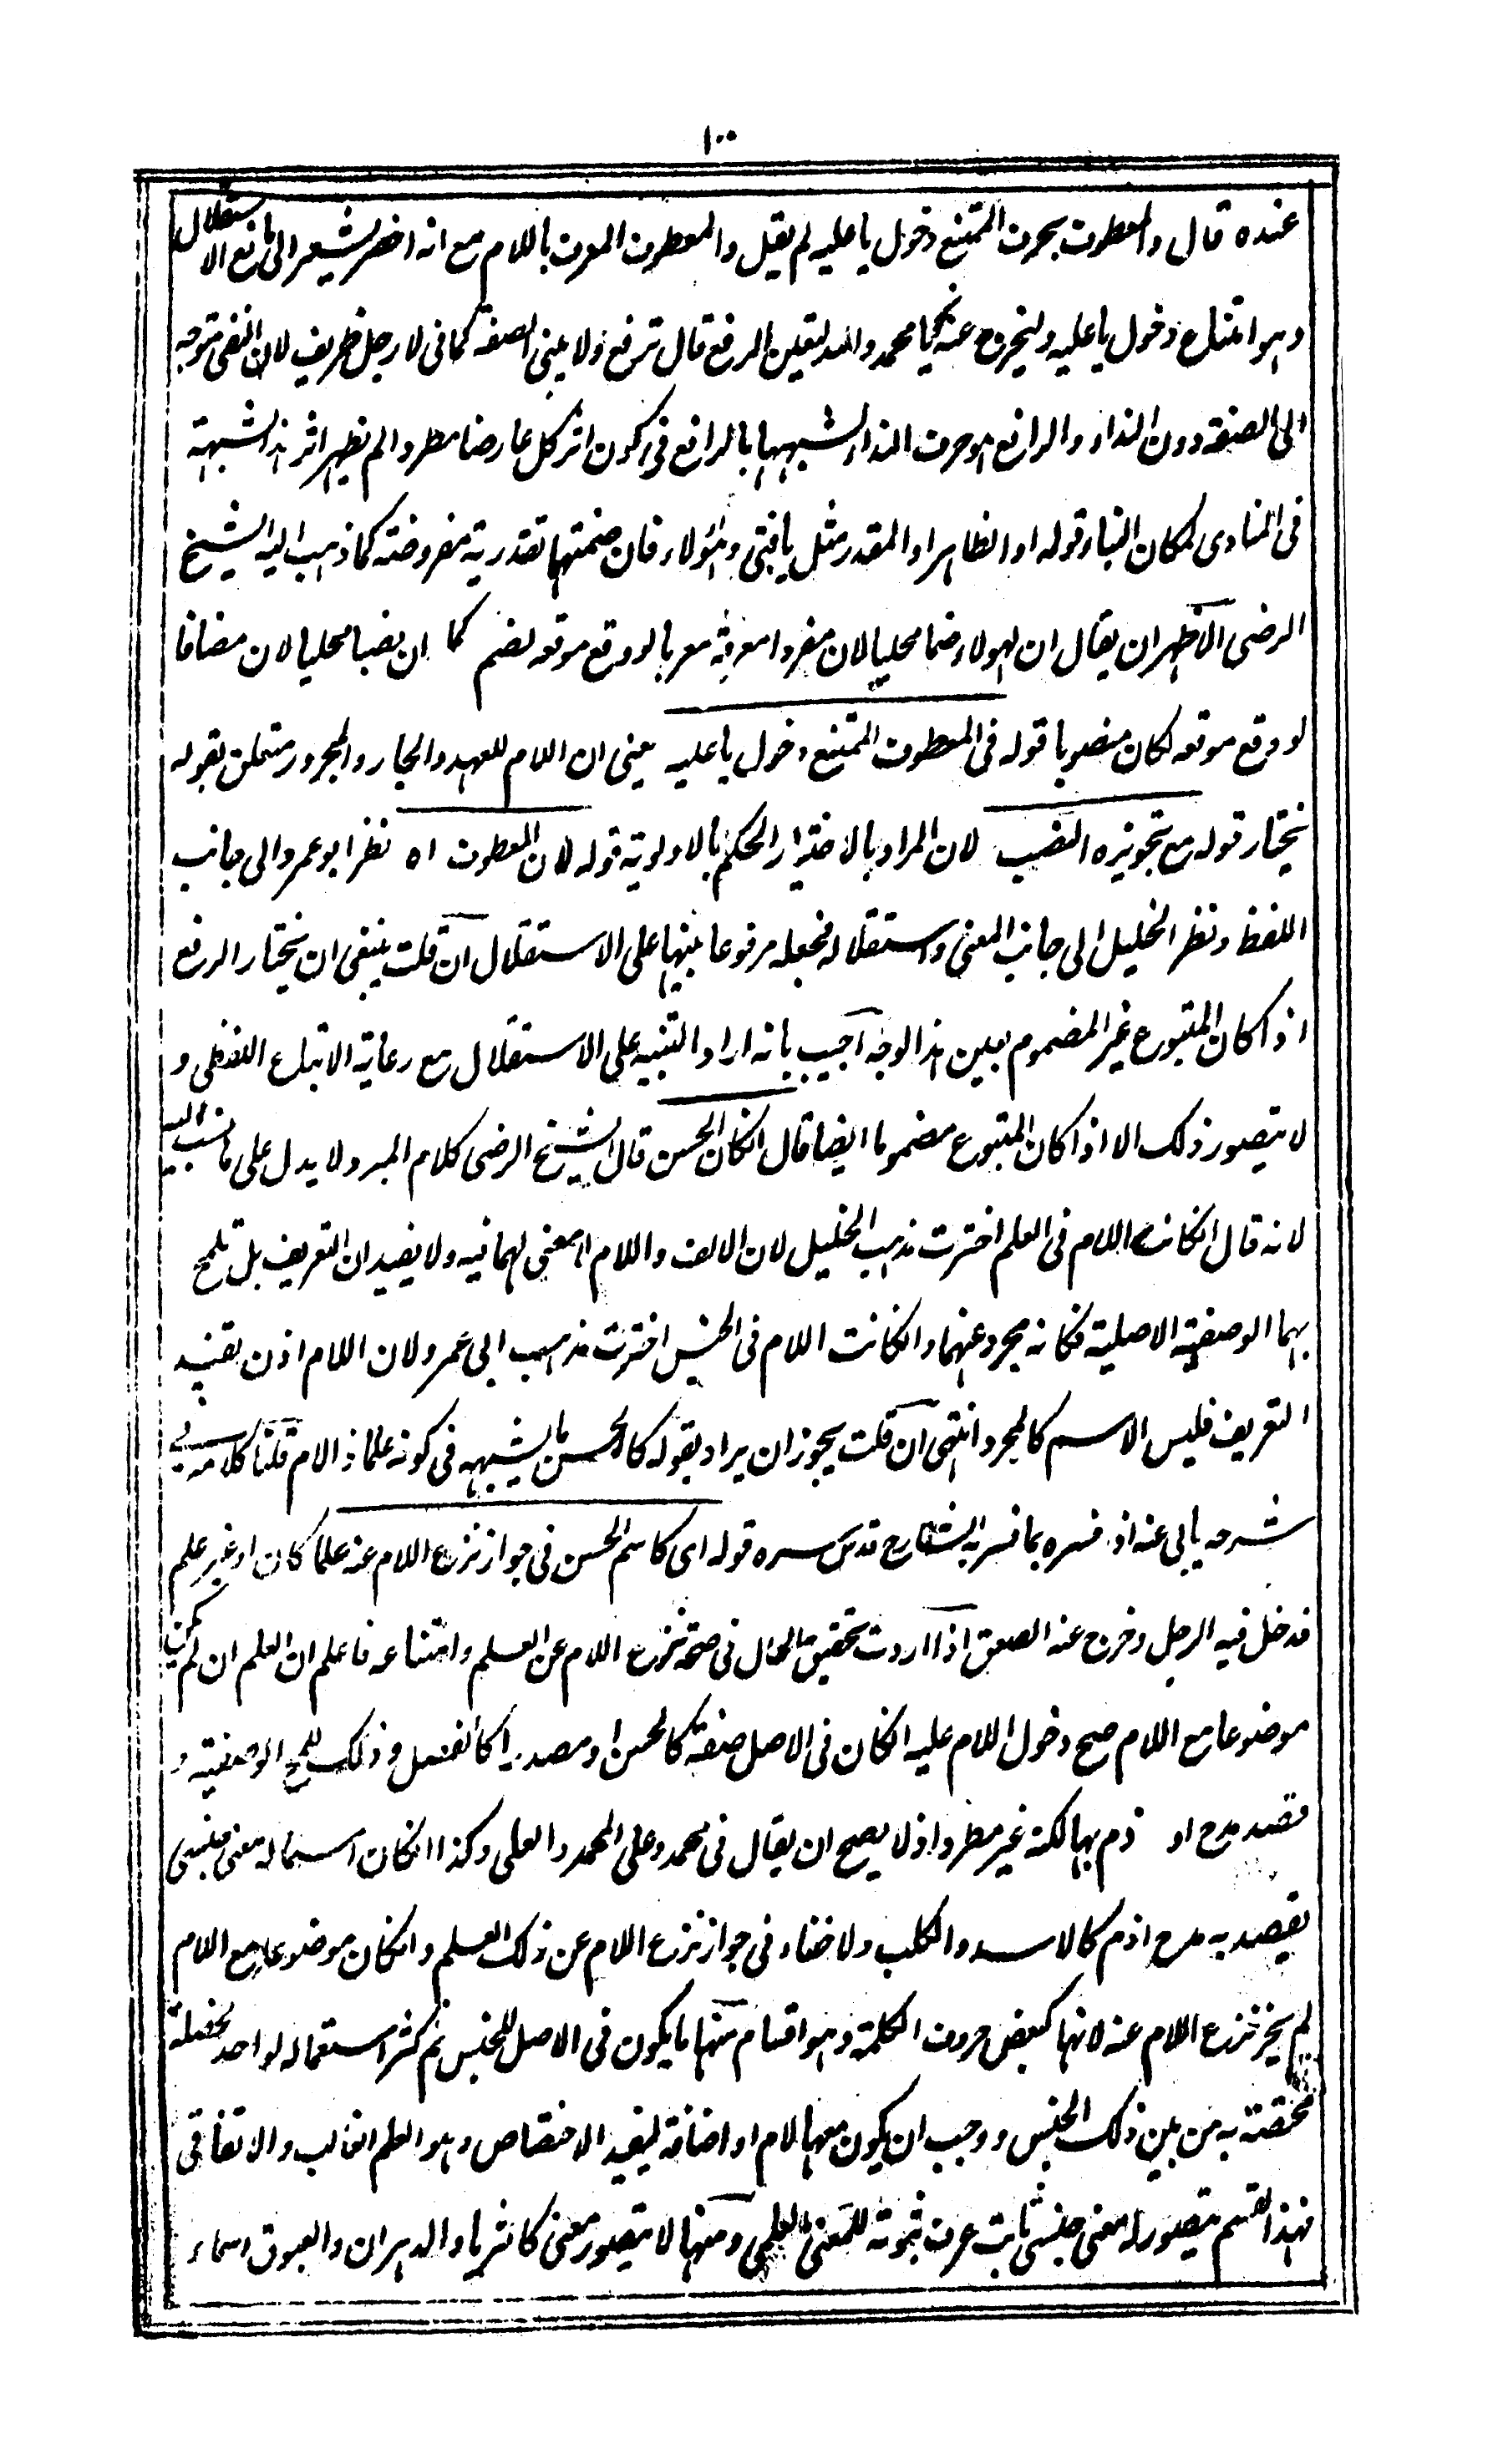 ١٠٠
عنده قال والمعطوف بحرف الممتنع دخول يا عليه لم يقل والمعطوف المعرف باللام مع انه اخصر ليشعر الى مانع الاستقلال
وهو امتناع دخول يا عليه وليخرج عنه يا محمد والله لتعين الرفع قال ترفع ولا يبنى الصفة كما فى لا رجل ظريف لان النفى متوجه
الى الصفة دون النداء والرافع هو حرف النداء لشبهها بالرافع فى كون اثر كل عارضا مطردا لم يظهر اثر هذا الشبهة
فى المنادى لمكان البناء قوله او الظاهر او المقدر مثل يا فتى وهؤلاء فان ضمتها تقديرية مفروضة كما ذهب اليه الشيخ
الرضى الاظهر ان يقال ان لهولاء ضما محليا لان مفردا معرفة معربا لو وقع موقعه لضم كما ان نصبا محليا لان مضافا
لو وقع موقعه لكان منصوبا قوله فى المعطوف الممتنع دخول يا عليه يعنى ان اللام للعهد والجار والمجرور متعلق بقوله
يختار قوله مع تجويزه النصب لان المراد بالاختيار الحكم بالاولوية قوله لان المعطوف اه نظر ابو عمرو الى جانب
اللفظ ونظر الخليل الى جانب المعنى واستقلاله فجعله مرفوعا تنبيها على الاستقلال ان قلت ينبغى ان يختار الرفع
اذا كان المتبوع غير المضموم بعين هذا الوجه اجيب بانه اراد التنبيه على الاستقلال مع رعاية الاتباع اللفظى و
لا يتصور ذلك الا اذا كان المتبوع مضموما ايضا قال انكان الحسن قال الشيخ الرضى كلام المبرد لا يدل على ما نسب اليه
لانه قال انكانت اللام فى العلم اخترت مذهب الخليل لان الالف واللام لا معنى لهما فيه ولا يفيدان التعريف بل تلمح
بهما الوصفية الاصلية فكانه مجرد عنهما وانكانت اللام فى الجنس اخترت مذهب ابى عمرو لان اللام اذن تفيد
التعريف فليس الاسم كالمجرد انتهى ان قلت يجوز ان يراد بقوله كالحسن ما يشبهه فى كونه علما ذا لام قلنا كلامه فى
شرحه يابى عنه اذ فسره بما فسر به الشارح قدس سره قوله اى كاسم الحسن فى جواز نزع اللام عنه علما كان او غير علم
فدخل فيه الرجل وخرج عنه الصعق اذا اردت تحقيق الحال فى صحة نزع اللام عن العلم وامتناعه فاعلم ان العلم ان لم يكن
موضوعا مع اللام صح دخول اللام عليه انكان فى الاصل صفة كالحسن او مصدرا كالفضل وذلك للمح الوصفية و
قصد مدح او ذم بها لكنه غير مطرد اذ لا يصح ان يقال فى محمد وعلى المحمد والعلى وكذا انكان اسما له معنى جنسى
يقصد به مدح اوذم كالاسد والكلب ولا خفاء فى جواز نزع اللام عن ذلك العلم وانكان موضوعا مع اللام
لم يجز نزع اللام عنه لانها كبعض حروف الكلمة وهو اقسام منها ما يكون فى الاصل للجنس ثم كثر استعماله لواحد لخصلة
مختصة به من بين ذلك الجنس ووجب ان يكون معها لام او اضافة ليفيد الاختصاص وهو العلم الغالب والاتفاقى
فهذا القسم يتصور له معنى جنسى ثابت عرف ثبوته للمعنى العلمى ومنها لا يتصور معنى كالثريا والدبران والعيوق اسماء